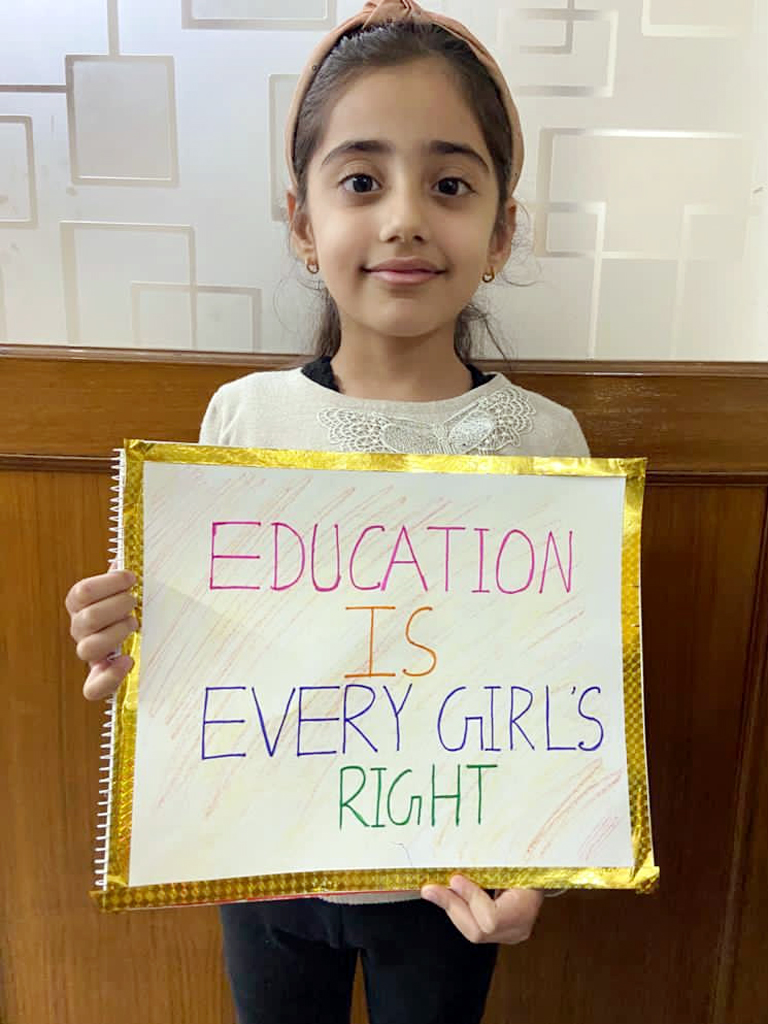 EDUCATION
IS
EVERY GIRL'S
RIGHT